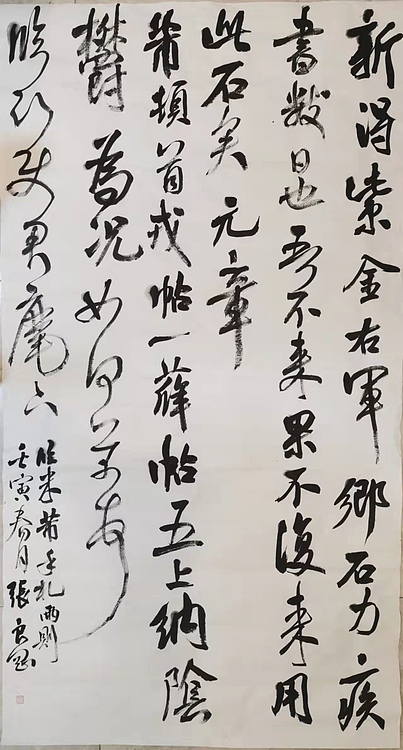 新得紫金右軍鄉石力疾
書數日也吾不來果不復來用
此石矣元章
芾頓首戎帖一薛帖五上納陰
鬱為況如何芾頓首
臨沂使君麾下
臨米芾手札兩則
壬寅春月張